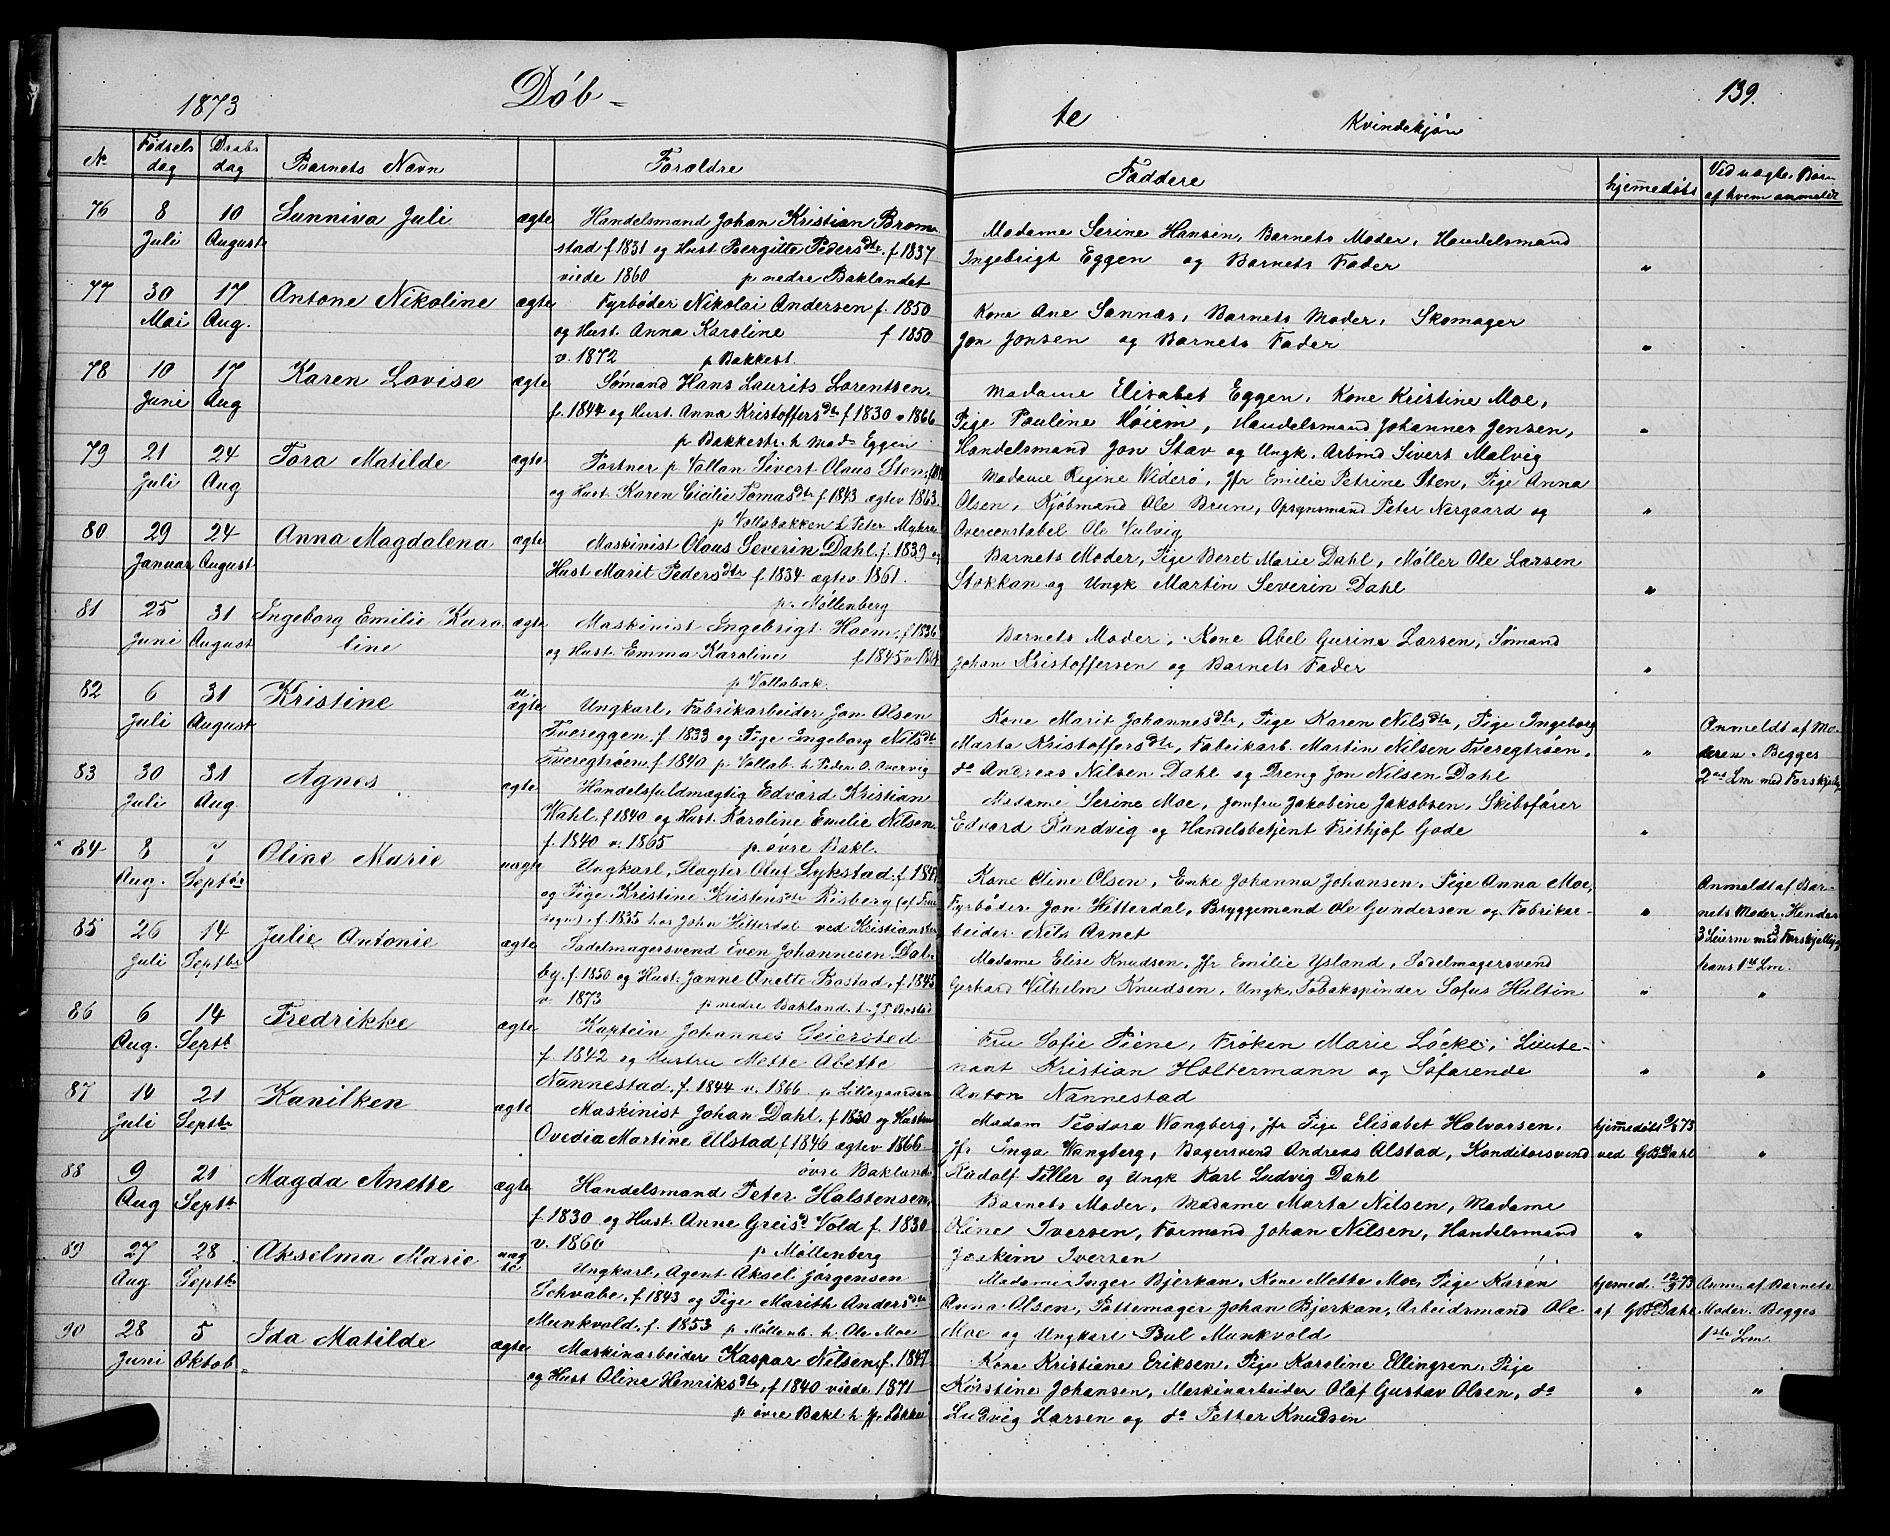 1873 Döb-
te Kvindekjön 139.
No Födsels dag Daabs dag Barnets Navn Foraldre
Faddere hjemmedöbt Ved uægte Börn af hvem anmeldt
76 8 Juli 10 August Sunniva Juli ægte Handelsmand Johan Kristian Brom-
stad f 1831 og Hust Bergitte Pedersdtr. f 1837
viede 1860 p nedre Baklandet
Madame Serine Hansen, Barnets Moder, Handelsmand
Ingebrigt Eggen og Barnets Fader "
77 30 Mai 17 Aug. Antone Nikoline ægte Fyrböder Nikolai Andersen f. 1850
og Hust. Anna Karoline f 1850
v. 1872 p Bakkest.
Kone Ane Sannæs, Barnets Moder, Skomager
Jon Jonsen og Barnets Fader "
78 10 Juni 17 Aug Karen Lovise ægte Sömand Hans Laurits Lorentsen,
f. 1844 og Hust. Anna Kristoffersdtr f 1830 v 1866
p Bakkestr. h. Mad. Eggen
Madame Elisabet Eggen, Kone Kristine Moe,
Pige Pauline Höiem, Handelsmand Johannes Jensen, "
Handelsmand Jon Stav og Ungk. Arbmd Sivert Malvig
79 21 Juli 24 Aug Tora Matilde ægte Portner p Vollan Sivert Olaus Sten
og Hust. Karen Cicilie Tomasdtr f 1843 ægtev 1863.
p Vollabakken h Peter Myhre
Madame Regine Viderö, Jfr Emilie Petrine Sten, Pige Anna
Olsen, Kjöbmand Ole Brun, Opsynsmand Peter Nergaard og "
Overconstabel Ole Vulvig
80 29 Januar 24 August Anna Magdalena ægte Maskinist Olaus Severin Dahl f. 1839 og
Hust Marit Pedersdtr f 1834 ægtev. 1861.
p. Möllenberg
Barnets Moder, Pige Beret Marie Dahl, Möller Ole Larsen
Stokkan og Ungk Martin Severin Dahl "
81 25 Juni 31 August Ingeborg Emilie Karo-
line ægte Maskinist Ingebrigt Hoem, f 1836
og Hust. Emma Karoline f. 1845
p Vollabak.
Barnets Moder, Kone Abel Gurine Larsen, Sömand
Johan Kristoffersen og Barnets Fader "
82 6 Juli 31 August Kristine u. ægte Ungkarl, Fabrikarbeider Jon Olsen
Tvereggen, f. 1833 og Pige Ingeborg Nilsdtr
Tveregtröen, f. 1840 p Vollab. h Peder O. Overvig
Kone Marit Johannesdtr, Pige Karen Nilsdtr, Pige Ingeborg
Marta Kristoffersdtr, Fabrikarb. Martin Nilsen Tveregtröen, "
do Andreas Nilsen Dahl og Dreng Jon Nilsen Dahl
Anmeldt af Mo-
deren. Begges
2det Lm med Forskjellig
83 30 Juli 31 Aug Agnes ægte Handelsfuldmægtig Edvard Kristian
Wahl, f 1840 og Hust. Karoline Emilie Nilsen
f. 1840 v. 1865 p. övre Bakl.
Madame Serine Moe, Jomfru Jakobine Jakobsen, Skibsförer
Edvard Randvig og Handelsbetjent Frithjof Gade "
84 8 Aug. 7 Septbr Oline Marie uægte Ungkarl, Slagter Oluf Lykstad, f. 1844
og Pige Kristine Kristensdtr Risberg
f. 1835 hos John Hitterdal ved Kristiansten
Kone Oline Olsen, Enke Johanna Johansen, Pige Anna Moe,
Fyrböder Jon Hitterdal, Bryggemand Ole Gundersen og Fabrikar- "
beider Nils Aunet
Anmeldt af Bar-
nets Moder. Hendes
3 Leierm med 3 Forskjellige
hans 1ste Lm.
85 26 Juli 14 Septbr Julie Antonie ægte Sadelmagersvend Even Johannesen Dal-
by, f. 1850 og Hust. Janne Anette Bostad, f. 1845
v. 1873 p nedre Bakland. h. J. P. Bostad
Madame Elise Knudsen, Jfr Emilie Ysland, Sadelmagersvend
Gerhard Vilhelm Knudsen, Ungk. Tobakspinder Sofus Hultin " "
86 6 Aug. 14 Septb Fredrikke ægte Kaptein Johannes Seiersted
f. 1842 og Hustru Mette Abette
Nannestad, f. 1844 v. 1866 p Lillegaarden
Fru Sofie Piene, Fröken Marie Löcke, Lieute-
nant Kristian Holtermann og Söfarende " "
Anton Nannestad
87 14 Juli 21 Septbr Kanilken ægte Maskinist Johan Dahl, f 1830 og Hustru
Ovedia Martine Ulstad f 1846 ægtev 1866
övre Bakland.
Madam Teodora Wangberg, Jfr Pige Elisabet Halvorsen,
Jfr Inga Wangberg, Bagersvend Andreas Alstad, Konditorsvend
Rudolf Tiller og Ungk Karl Ludvig Dahl
hjemmedöbt 9/8 73
ved G B Dahl "
88 9 Aug 21 Septbr Magda Anette ægte Handelsmand Peter Halstensen,
f. 1830 og Hust. Anne Greisd Vold f. 1830
v. 1860 p. Möllenberg
Barnets Moder, Madame Marta Nilsen, Madame
Oline Iversen, Formand Johan Nilsen, Handelsmand "
Joakim Iversen
89 27 Aug 28 Septbr Akselma Marie uæg
te Ungkarl, Agent Aksel Jörgensen
Schvabe, f. 1843 og Pige Marith Andersdtr
Munkvold, f. 1853 p Möllenb. h. Ole Moe
Madame Inger Bjerkan, Kone Mette Moe, Pige Karen
Anna Olsen, Pottemager Johan Bjerkan, Arbeidsmand Ole
Moe og Ungkarl Bul Munkvold
hjemmed. 12/9 73
af G B Dahl
Anm. af Barnets
Moder. Begges
1ste Lm.
90 28 Juni 5 Oktob. Ida Matilde ægte Maskinarbeider Kaspar Nilsen, f. 1847
og Hust Oline Henriksdtr, f 1840 viede 1871
p övre Bakl h Lökke
Kone Kristiane Eriksen, Pige Karoline Ellingsen, Pige
Kirstine Johansen, Maskinarbeider Olaf Gustav Olsen, do " "
Ludvig Larsen og do Petter Knudsen